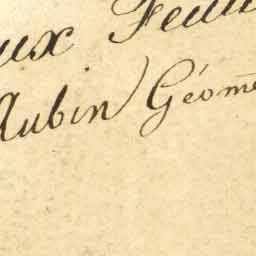 ux Feui
Aubin Géom